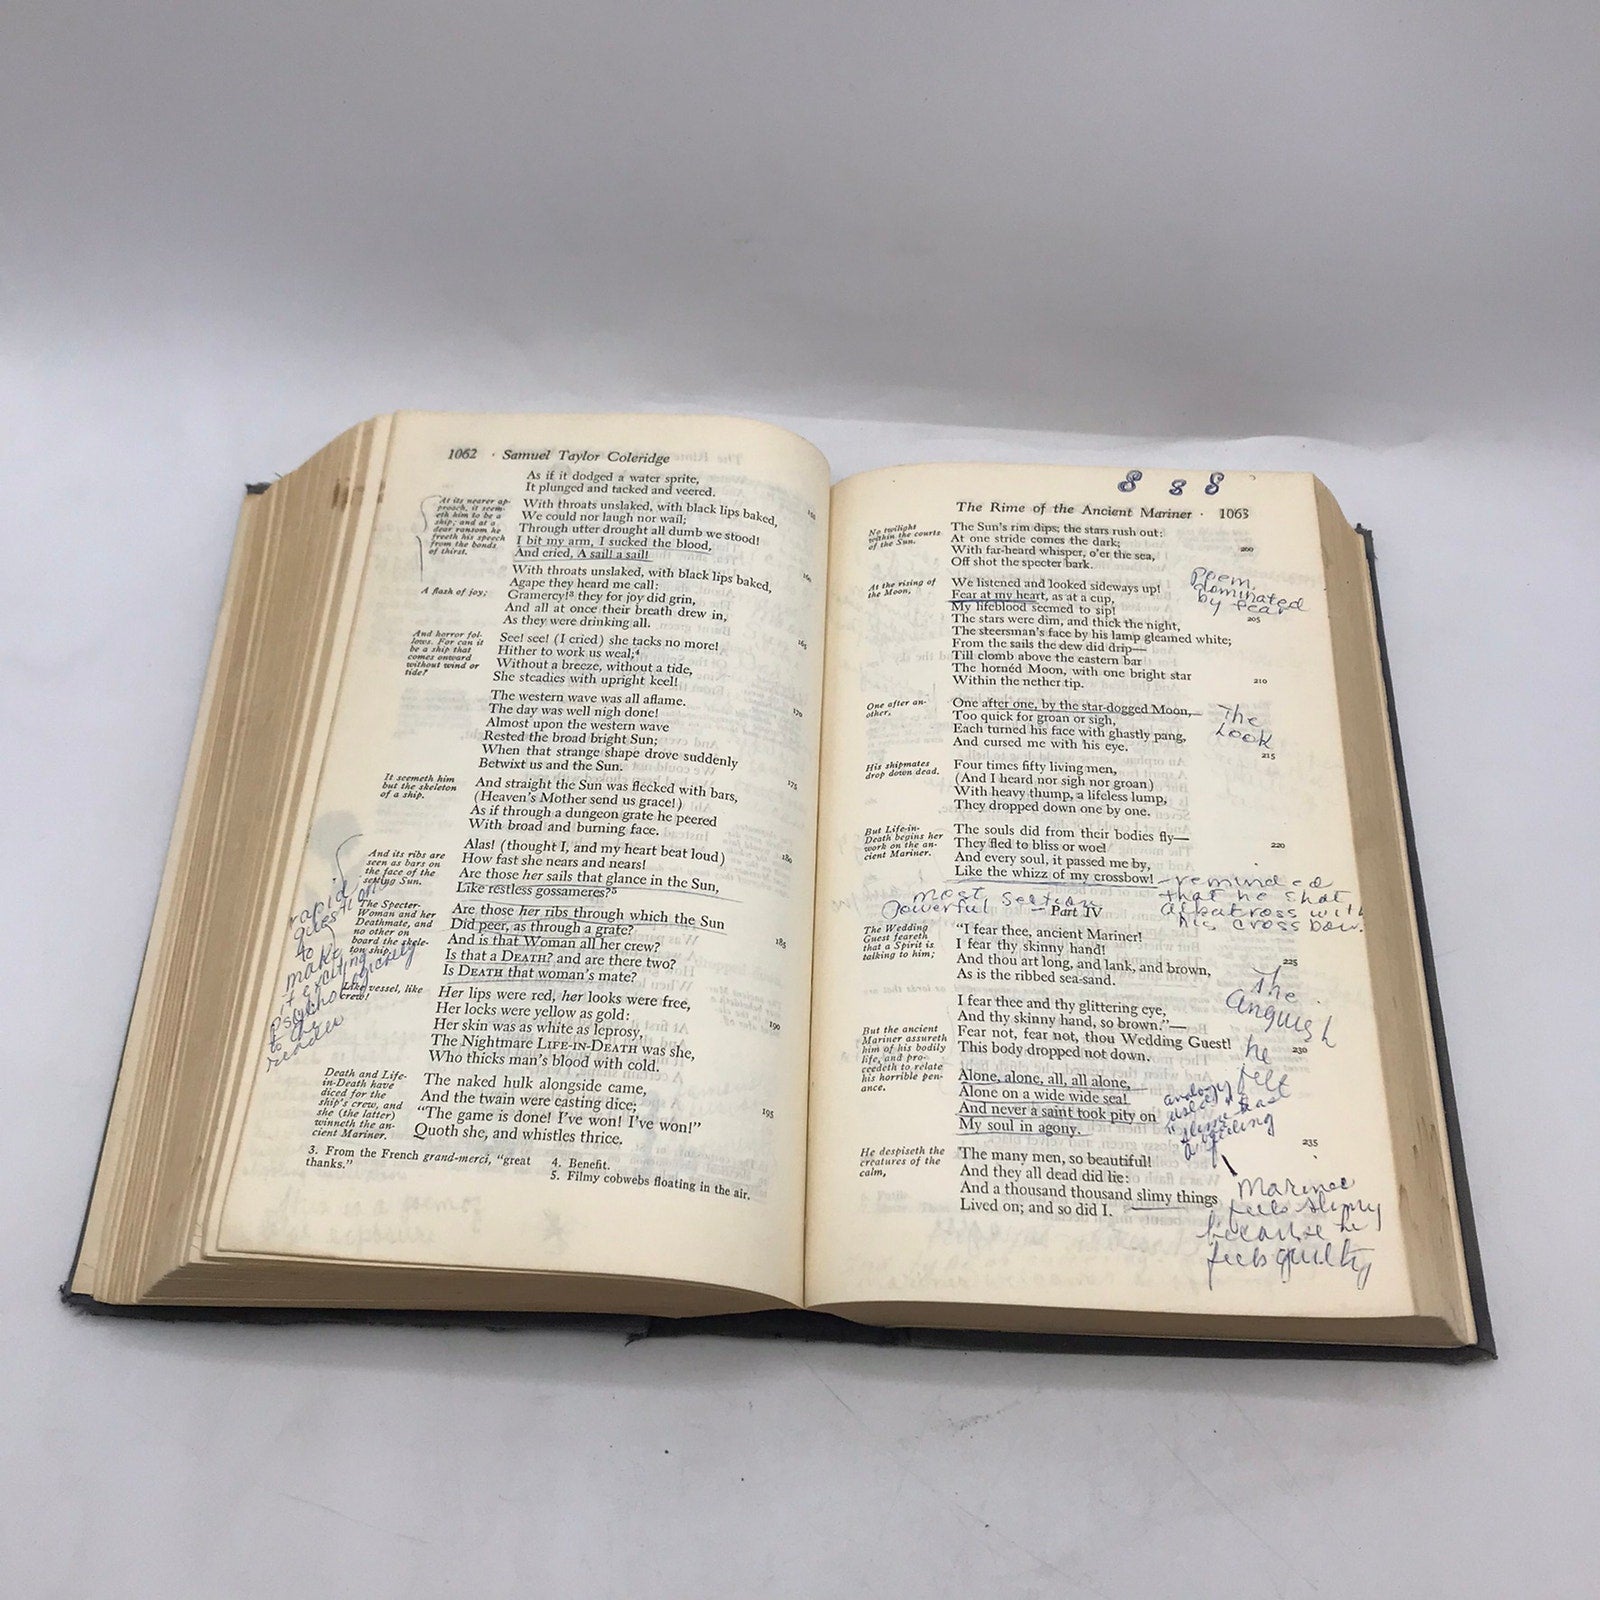 1062 · Samuel Taylor Coleridge
As if it dodged a water sprite,
It plunged and tacked and veered.
At its nearer ap-
proach, it seem-
eth him to be a
ship; and at a
dear ransom he
freeth his speech
from the bonds
of thirst.
With throats unslaked, with black lips baked,
We could nor laugh nor wail;
Through utter drought all dumb we stood!
I bit my arm, I sucked the blood,
And cried, A sail! a sail!
160
With throats unslaked, with black lips baked,
Agape they heard me call:
A flash of joy;
Gramercy!³ they for joy did grin,
And all at once their breath drew in,
As they were drinking all.
And horror fol-
lows. For can it
be a ship that
comes onward
without wind or
tide?
See! see! (I cried) she tacks no more!
165
Hither to work us weal;⁴
Without a breeze, without a tide,
She steadies with upright keel!
The western wave was all aflame.
The day was well nigh done!
170
Almost upon the western wave
Rested the broad bright Sun;
When that strange shape drove suddenly
Betwixt us and the Sun.
It seemeth him
but the skeleton
of a ship.
And straight the Sun was flecked with bars,
175
(Heaven's Mother send us grace!)
As if through a dungeon grate he peered
With broad and burning face.
And its ribs are
seen as bars on
the face of the
setting Sun.
Alas! (thought I, and my heart beat loud)
180
How fast she nears and nears!
Are those her sails that glance in the Sun,
Like restless gossameres?⁵
The Specter-
Woman and her
Deathmate, and
no other on
board the skele-
ton ship.
Are those her ribs through which the Sun
Did peer, as through a grate?
185
And is that Woman all her crew?
Is that a DEATH? and are there two?
Is DEATH that woman's mate?
rapid
questions
to
make
it exciting
psychologically
to the
reader
Like vessel, like
crew!
Her lips were red, her looks were free,
Her locks were yellow as gold:
190
Her skin was as white as leprosy,
The Nightmare LIFE-IN-DEATH was she,
Who thicks man's blood with cold.
Death and Life-
in-Death have
diced for the
ship's crew, and
she (the latter)
winneth the an-
cient Mariner.
The naked hulk alongside came,
And the twain were casting dice;
195
"The game is done! I've won! I've won!"
Quoth she, and whistles thrice.
3. From the French grand-merci, "great
thanks."
4. Benefit.
5. Filmy cobwebs floating in the air.
The Rime of the Ancient Mariner · 1063
No twilight
within the courts
of the Sun.
The Sun's rim dips; the stars rush out:
At one stride comes the dark;
200
With far-heard whisper, o'er the sea,
Off shot the specter bark.
At the rising of
the Moon,
We listened and looked sideways up!
Fear at my heart, as at a cup,
My lifeblood seemed to sip!
205
The stars were dim, and thick the night,
The steersman's face by his lamp gleamed white;
From the sails the dew did drip—
Till clomb above the eastern bar
The hornéd Moon, with one bright star
210
Within the nether tip.
Poem
dominated
by fear
One after an-
other,
One after one, by the star-dogged Moon,
Too quick for groan or sigh,
Each turned his face with ghastly pang,
And cursed me with his eye.
215
The
Look
His shipmates
drop down dead.
Four times fifty living men,
(And I heard nor sigh nor groan)
With heavy thump, a lifeless lump,
They dropped down one by one.
But Life-in-
Death begins her
work on the an-
cient Mariner.
The souls did from their bodies fly—
220
They fled to bliss or woe!
And every soul, it passed me by,
Like the whizz of my crossbow!
reminded
that he shot
albatross with
his cross bow.
most
Powerful section
Part IV
The Wedding
Guest feareth
that a Spirit is
talking to him;
"I fear thee, ancient Mariner!
I fear thy skinny hand!
225
And thou art long, and lank, and brown,
As is the ribbed sea-sand.
I fear thee and thy glittering eye,
And thy skinny hand, so brown."—
But the ancient
Mariner assureth
him of his bodily
life, and pro-
ceedeth to relate
his horrible pen-
ance.
Fear not, fear not, thou Wedding Guest!
230
This body dropped not down.
Alone, alone, all, all alone,
Alone on a wide wide sea!
And never a saint took pity on
My soul in agony.
The
anguish
he
felt
235
He despiseth the
creatures of the
calm,
The many men, so beautiful!
And they all dead did lie:
And a thousand thousand slimy things
Lived on; and so did I.
Mariner
feels slimy
because he
feels guilty